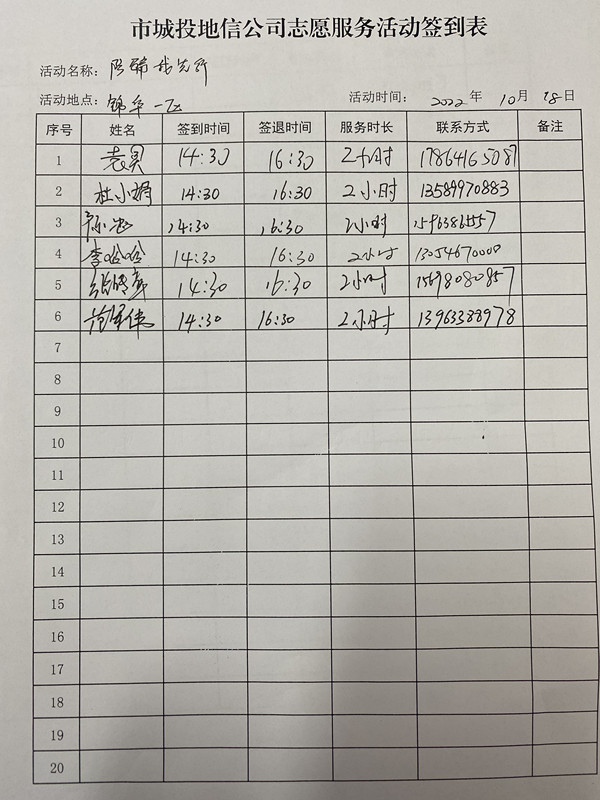 市城投地信公司志愿服务活动签到表
活动名称: 防 我先行
活动地点: 锦华一区 活动时间: 2022 年 10 月 18 日
序号 姓名 签到时间 签退时间 服务时长 联系方式 备注
1 袁昊 14:30 16:30 2小时 17864165087
2 杜小娟 14:30 16:30 2小时 13589970883
3 14:30 16:30 2小时
4 李哈哈 14:30 16:30 2小时 13054670000
5 14:30 16:30 2小时 15698080857
6 范军伟 14:30 16:30 2小时 13963388978
7
8
9
10
11
12
13
14
15
16
17
18
19
20